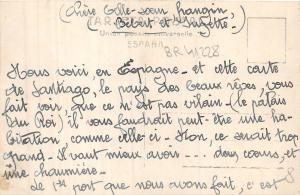 Chère Colle-sœur frangin,
(Bébert et Suzette)
TAR
Union postale universelle
ESPAÑA
BR41228
Nous voici, en Espagne - et cette carte
de Santiago, le pays des beaux rêves, vous
fait voir, que ce n'est pas vilain - (le palais
du Roi) il vous faudrait peut-être une ha-
bitation, comme celle-ci - Non, ce serait trop
grand - Il vaut mieux avoir - ... deux cœurs, et
une chaumière -
de 1er port que nous avons fait, c'est